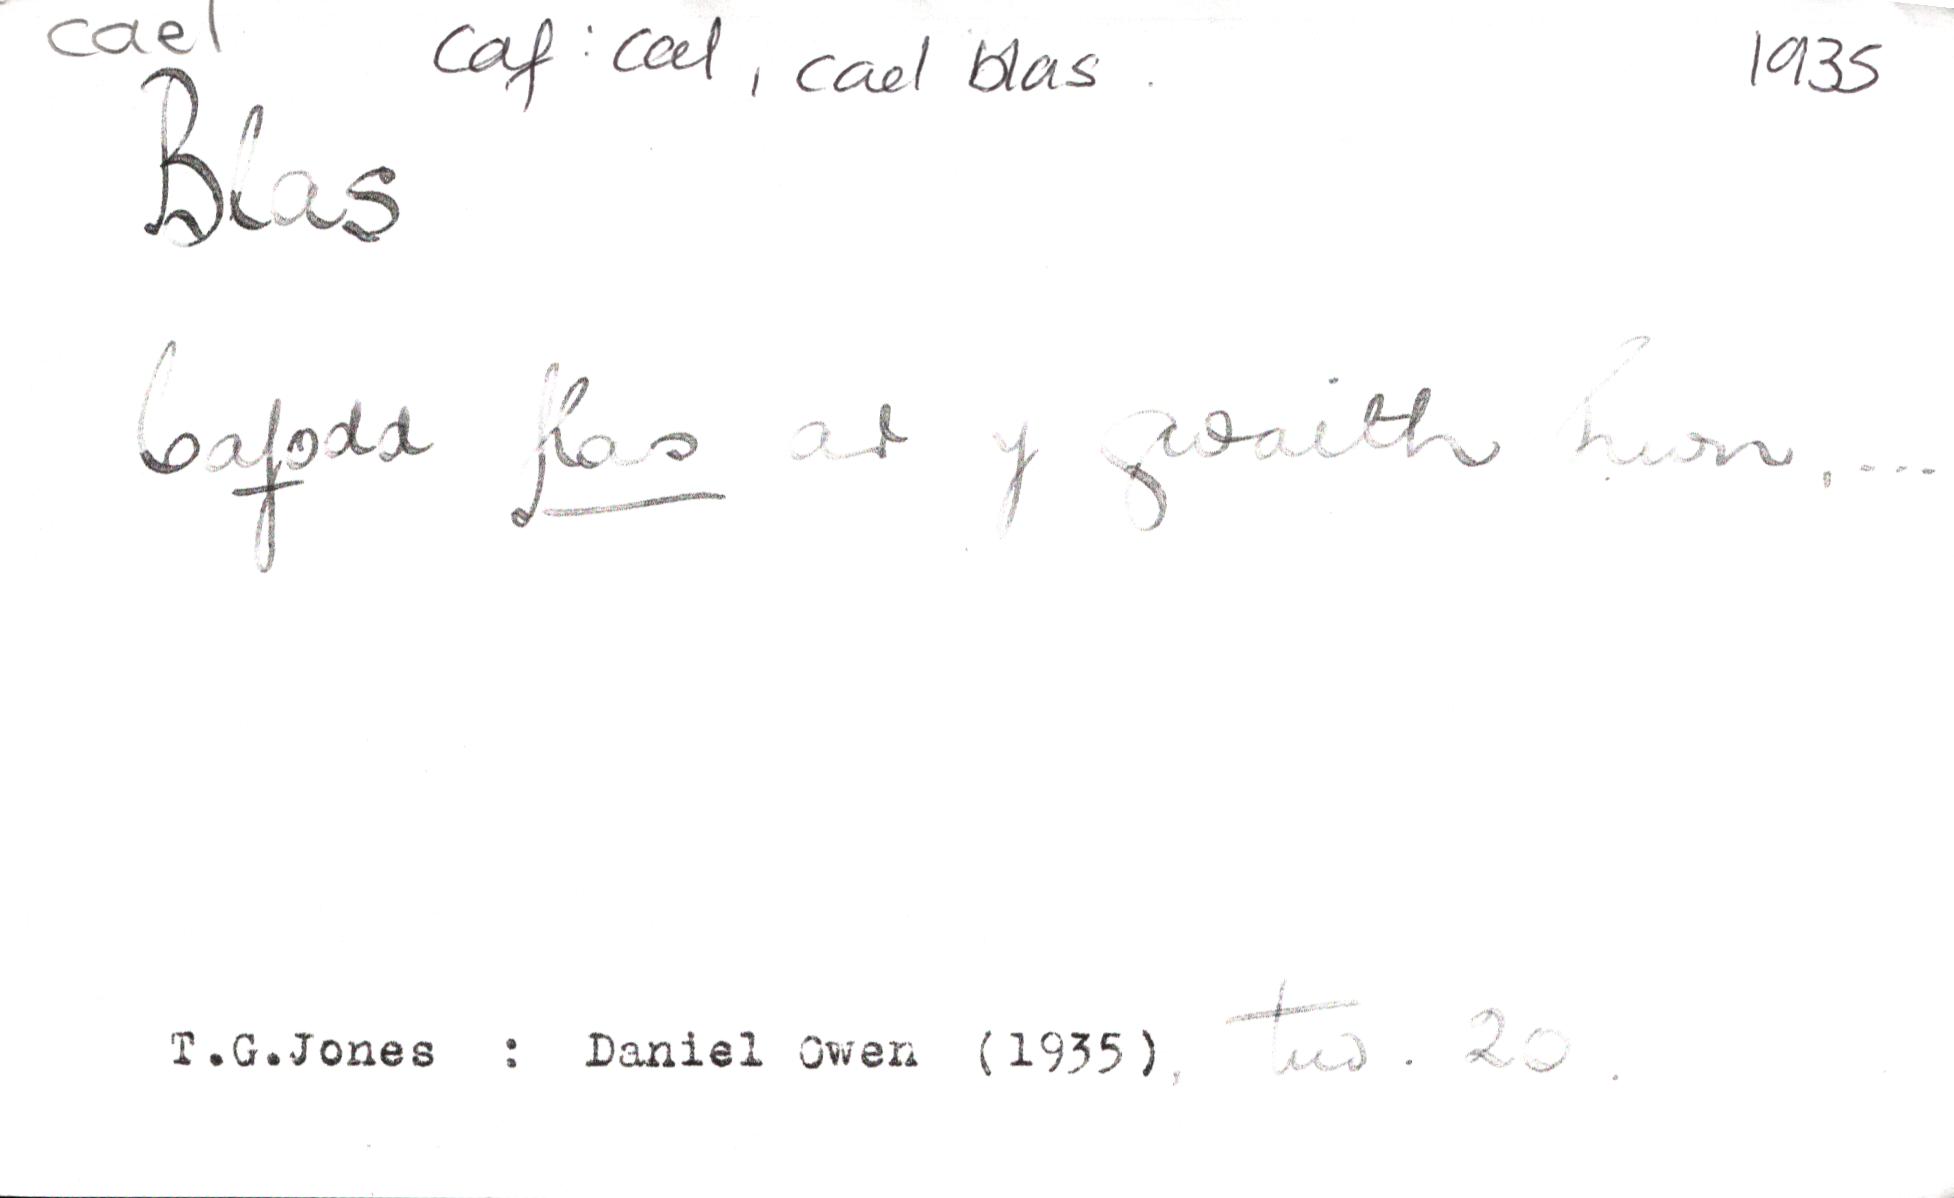 cael caf : cael, cael blas. 1935
Blas
Cafodd flas ar y gwaith hwn, ....
T.G.Jones : Daniel Owen (1935), tud. 20.